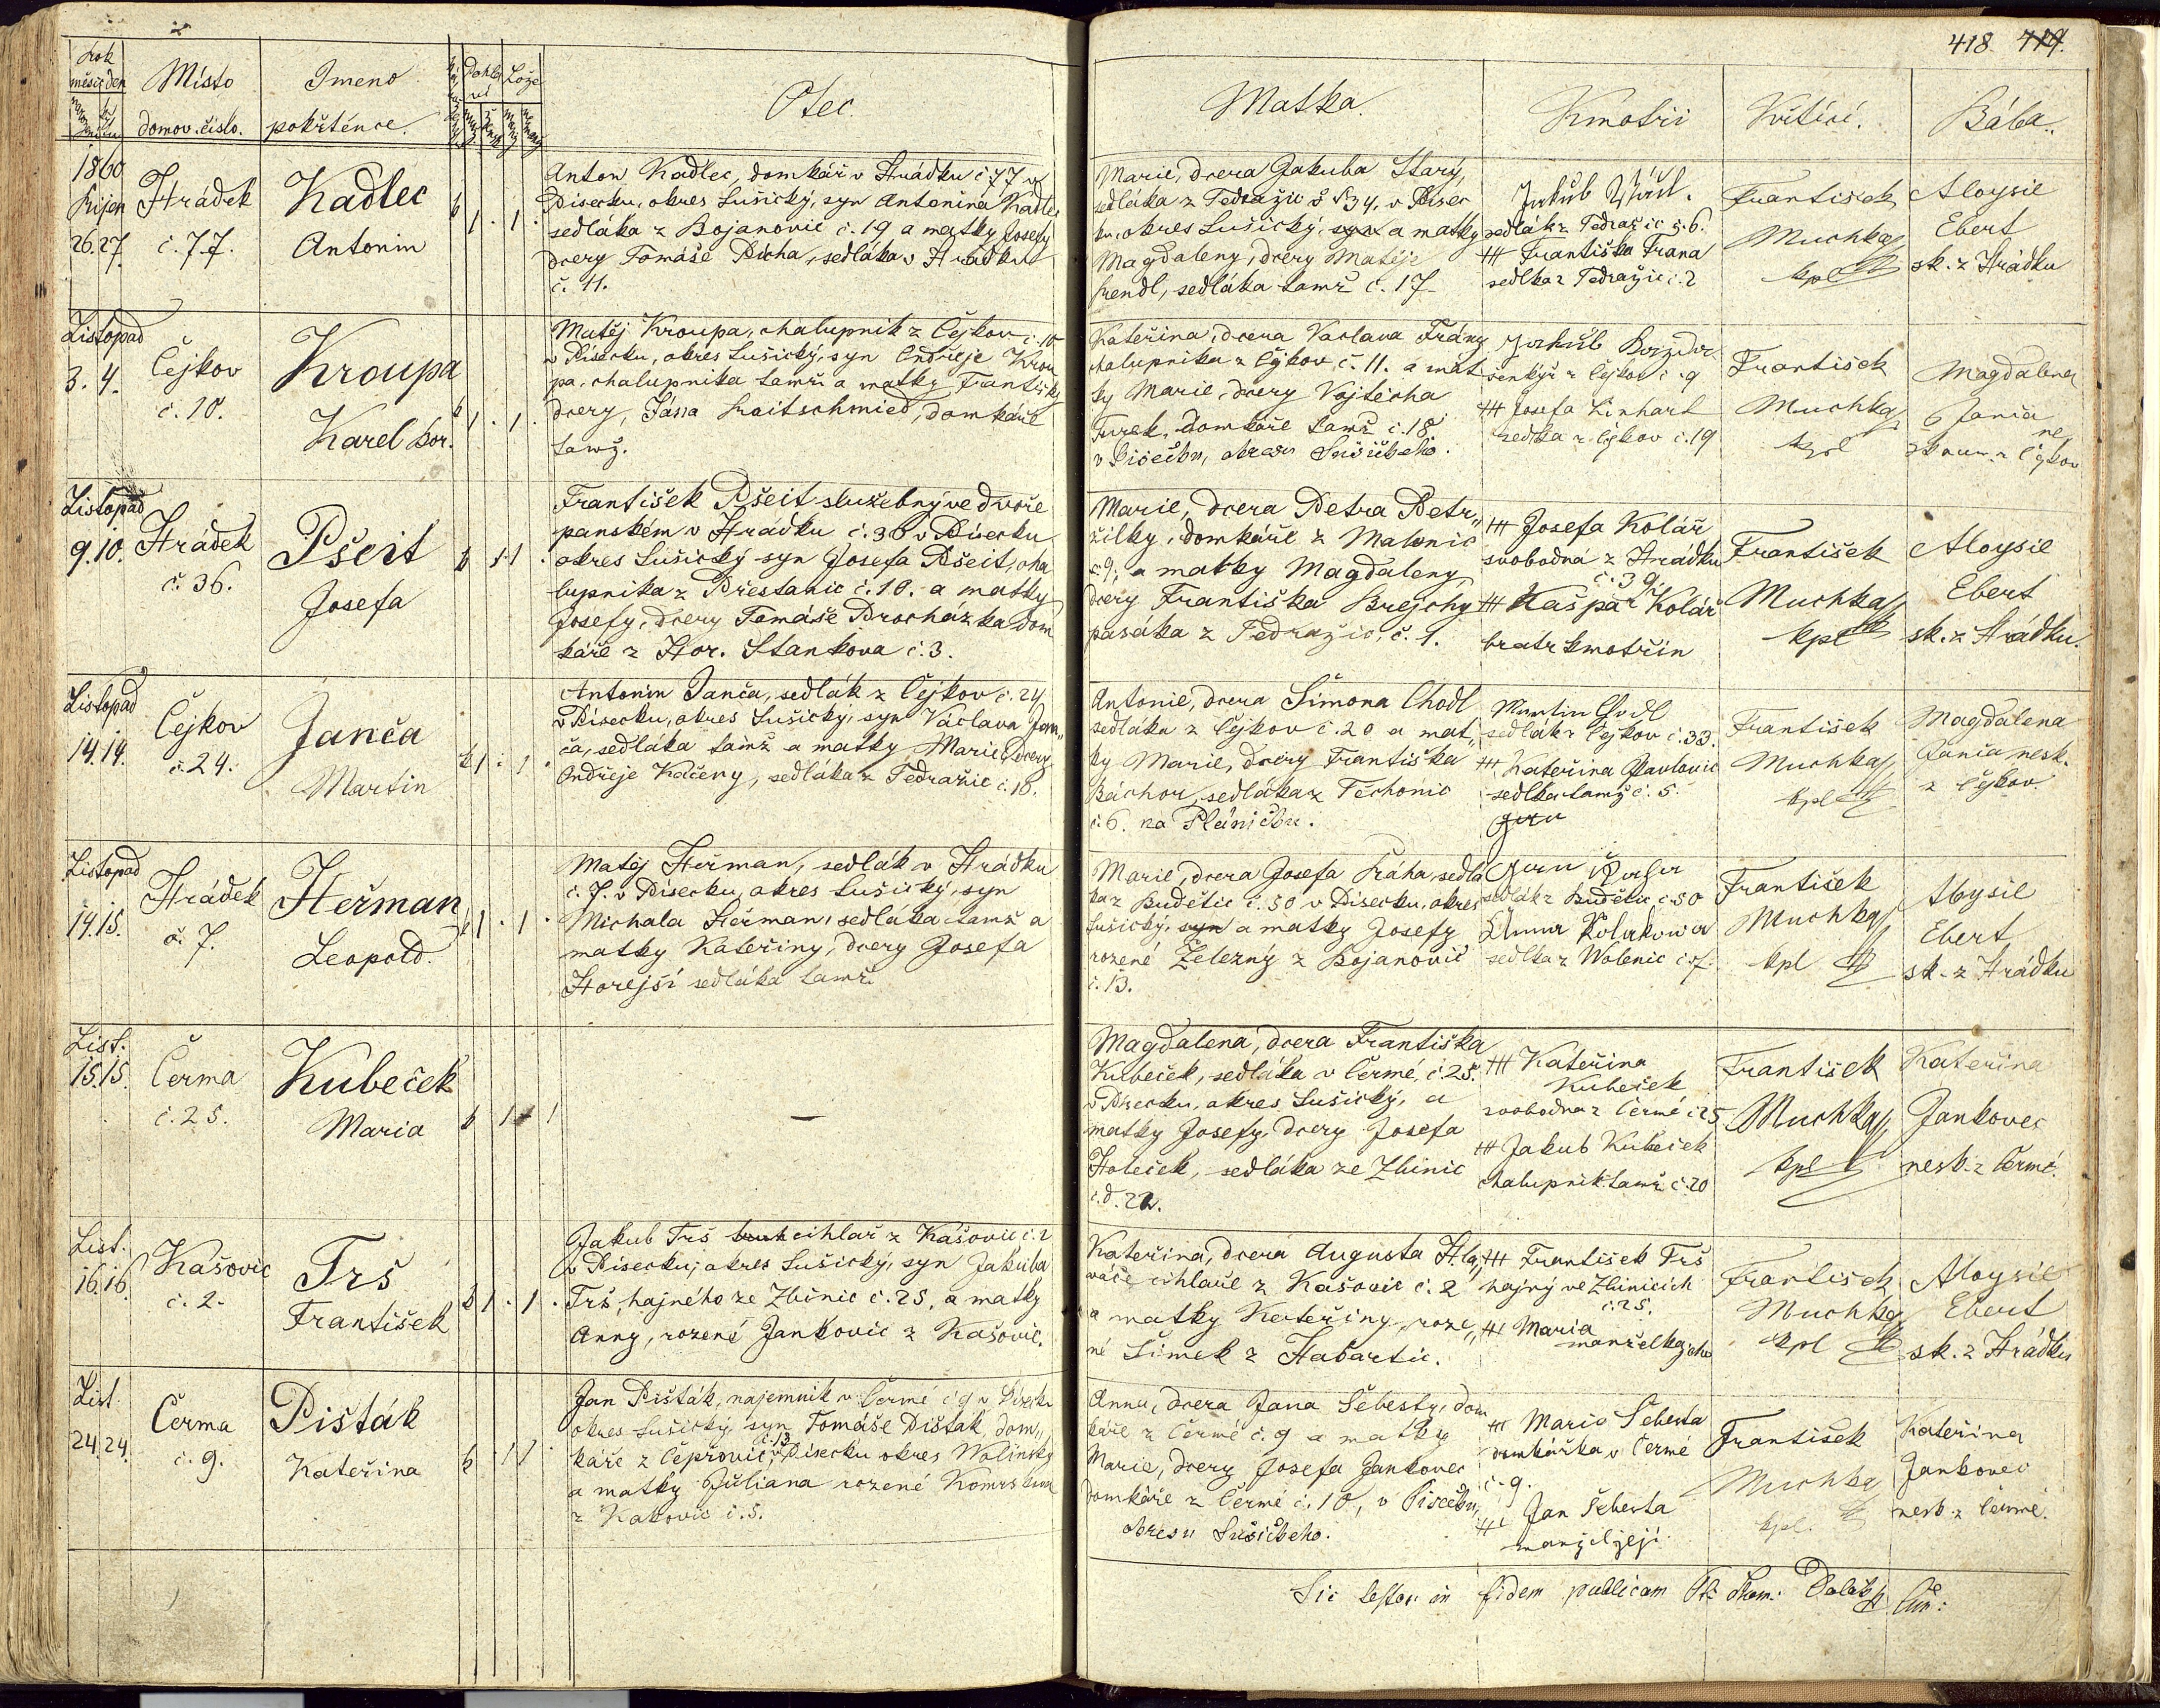 418. 419.
Rok
měsíc den
Místo
domov. číslo.
Jmeno
pokřtěnce.
Pohla
ví
Lože
Otec.
Matka.
Kmotři
Křtící.
Bába.
1860
Říjen
26. 27.
Hrádek
č. 77.
Kadlec
Antonin
Anton Kadlec, domkář v Hrádku č 77 v
Písecku, okres Sušický, syn Antonína Kadlec
sedláka z Bojanovic č. 19 a matky Josefy
dcery Tomáše Pícha, sedláka v Hrádku
č. 11.
Marie, dcera Jakuba Starý,
sedláka z Tedražic č 34. v Písec
ku, okres Sušický, syn a matky
Magdaleny, dcery Matěje
Frendl, sedláka tamž č. 17
Jakub
sedlák z Tedražic č. 6.
+++ Františka Frana
sedlka z Tedražic č. 2
František
Muchka
kpl
Aloysie
Ebert
sk. z Hrádku
Listopad
3. 4.
Čejkov
č. 10.
Kroupa
Karel bor.
Matěj Kroupa, chalupnik z Čejkov č. 10
v Písecku, okres Sušický, syn Ondřeje Krou
pa, chalupnika tamž a matky Františky
dcery, Jána Praitschmied, domkáře
tamž.
Kateřina, dcera Vaclava Frány
chalupnika z Čejkov, č. 11. a mat
ky Marie, dcery Vojtěcha
Turek, domkáře tamž č. 18
v Písecku, okresu Sušického.
Jakub
šenkýř z Čejkov č. 9
+++ Josefa Linhart
sedlka z Čejkov č. 19
František
Muchka
kpl
Magdalena
Janča
ne
zkoum. z Čejkov
Listopad
9. 10.
Hrádek
č. 36.
Pšeit
Josefa
František Pšeit služebný ve dvoře
panském v Hrádku č. 36 v Písecku
okres Sušický syn Josefa Pšeit, cha
lupnika z Přestanic č. 10. a matky
Josefy, dcery Tomáše Procházka dom
káře z Hor. Stankova č. 3.
Marie, dcera Petra Petr„
žilky, domkáře z Malonic
č 9; a matky Magdaleny
dcery Františka Brejchy
pasáka z Tedražic, č. 1.
+++ Josefa Kolář
svobodná z Hrádku
č. 39.
+++ Kašpar Kolář
bratr kmotřin
František
Muchka
kpl
Aloysie
Ebert
sk. z Hrádku.
Listopad
14. 14.
Čejkov
č. 24.
Janča
Martin
Antonin Janča, sedlák z Čejkov č. 24
v Písecku, okres Sušický, syn Václava Jan„
ča, sedláka tamž a matky Marie, dcery
Ondřeje Kačeny, sedláka z Tedražic č. 16.
Antonie, dcera Šimona Chodl
sedláka z Čejkov č. 20 a mat„
ky Marie, dcery Františka
Báchor, sedláka z Těchonic
č. 6. na Pláničku.
Martin Chodl
sedlák z Čejkov č. 33.
+++ Kateřina Pavlovic
sedlka tamž č. 5.
František
Muchka
kpl
Magdalena
Janča nesk.
z Čejkov.
Listopad
14. 15.
Hrádek
č. 7.
Heřman
Leopold.
Matěj Heřman, sedlák v Hrádku
č. 7. v Písecku, okres Sušický, syn
Michala Heřman, sedláka tamž a
matky Kateřiny, dcery Josefa
Hořejší sedláka tamž.
Marie, dcera Josefa Práha, sedlá
ka z Budětic č. 50 v Písecku, okres
Sušický, syn a matky Josefy
rozené Železný z Bojanovic
č. 13.
Jan
sedlák z Budětic č. 50
Anna Kolakowa
sedlka z Wolenic č 7.
František
Muchka
kpl
Aloysie
Ebert
sk. z Hrádku
List.
15. 15.
Čermá
č. 25.
Kubeček
Maria
—
Magdalena, dcera Františka
Kubeček, sedláka v Čermé, č. 25.
v Písecku, okres Sušický, a
matky Josefy, dcery Josefa
Holeček, sedláka ze Zbinic
č. d. 22.
+++ Kateřina
Kubeček
svobodna z Čermé č 25
+++ Jakub Kubeček
chalupnik tamž č. 20
František
Muchka
kpl
Kateřina
Jankovec
nesk. z Čermé.
List.
16. 16.
Kašovic
č. 2.
Trš
František
Jakub Trš cihlař z Kašovic č. 2
v Písecku; okres Sušický, syn Jakuba
Trš, hajného ze Zbinic č. 25, a matky
Anny, rozené Jankovic z Kašovic.
Kateřina, dcera Augusta Hla„
váče cihlaře z Kašovic č. 2
a matky Kateřiny, roze„
né Šimek z Habartic.
+++ František Trš
hajný ve Zbinicích
č. 25.
+++ Maria
manželka jeho
František
Muchka
kpl
Aloysie
Ebert
sk. z Hrádku
List
24. 24.
Čerma
č. 9.
Pišták
Kateřina
Jan Pišták, najemnik v Čermé č 9 v Písecku
okres Sušický, syn Tomáše Pišták, dom„
káře z Čeprovic, č. 13 v Písecku okres Wolinský
a matky Juliana rozené
z Kakovic č. 5.
Anna, dcera Jana Šebesty, dom
káře z Čermé č. 9 a matky
Marie, dcery Josefa Jankovec
domkáře z Čermé č. 10, v Písecku,
okresu Sušického.
+++ Marie Šebesta
domkářka v Čermé
č. 9.
+++ Jan Šebesta
manžel její
František
Muchka
kpl.
Kateřina
Jankovec
nesk. z Čermé.
Sic testor in fidem publicam